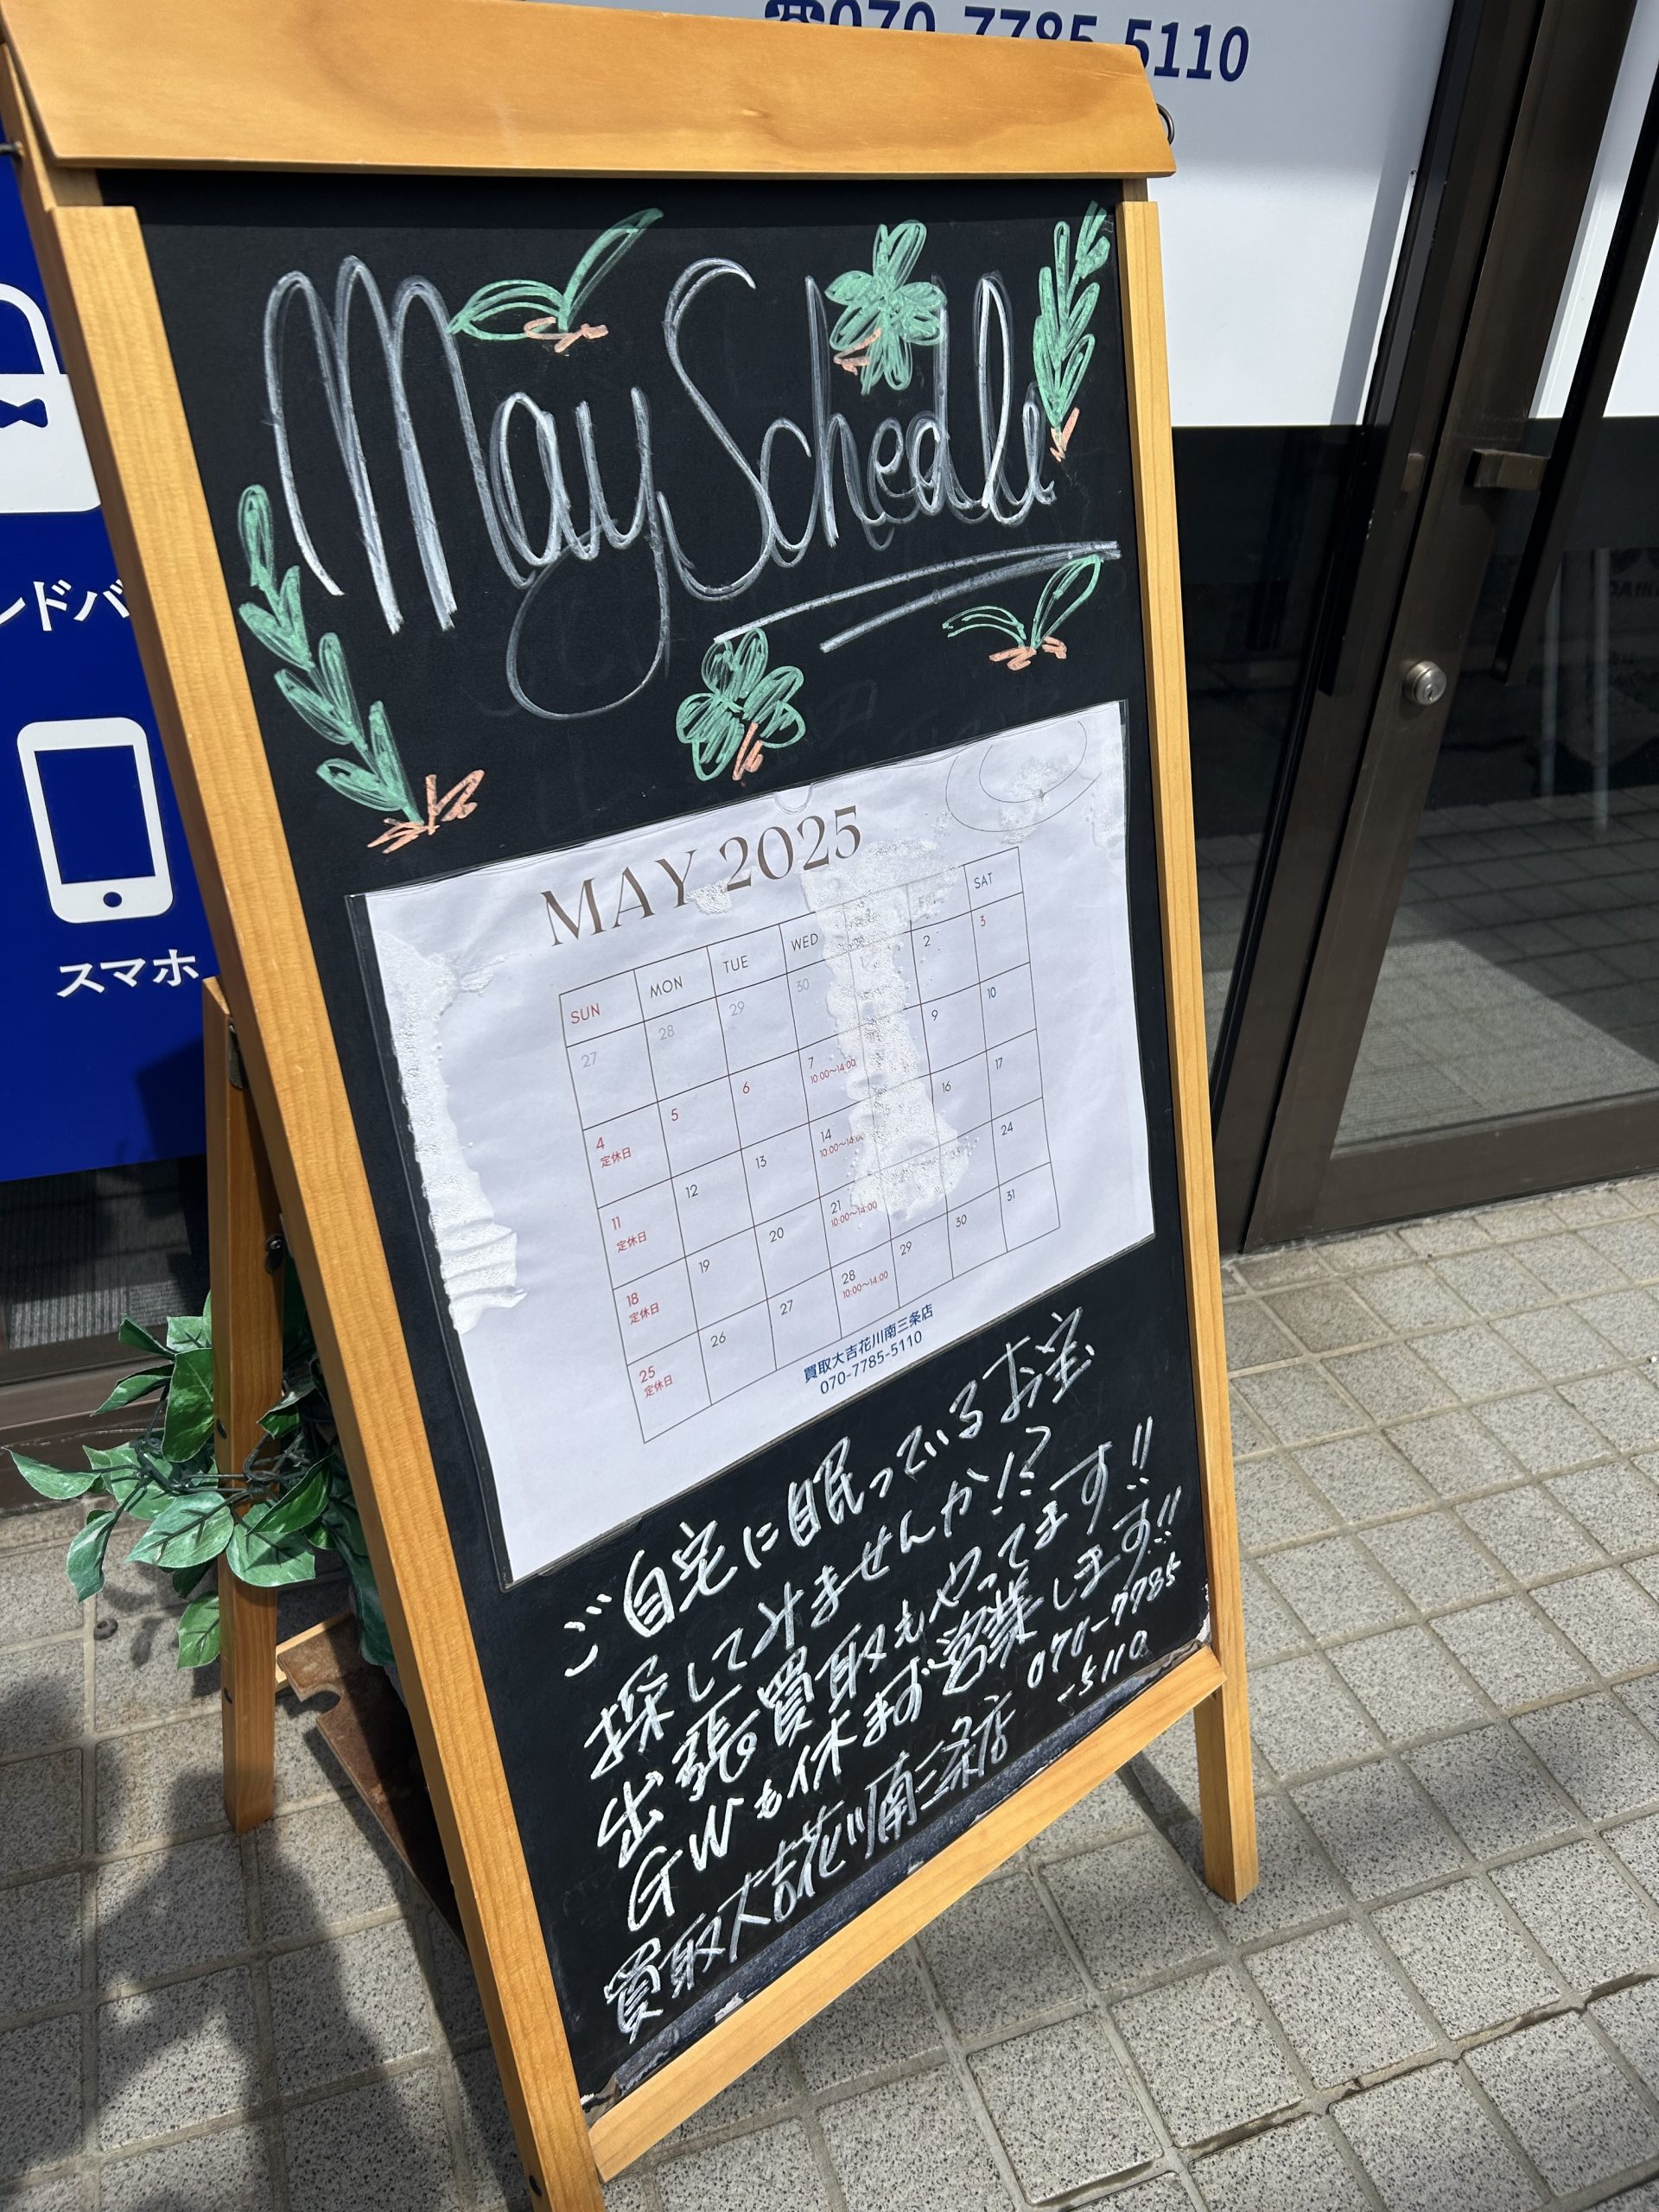 ☎070-7785-5110
ンドバ
スマホ
May Schedule
MAY 2025
SUN MON TUE WED FRI SAT
27 28 29 30 2 3
4 5 6 7 9 10
定休日 10:00~14:00
11 12 13 14 15 16 17
定休日 10:00~14:00
18 19 20 21 24
定休日 10:00~14:00
25 26 27 28 29 30 31
定休日 10:00~14:00
買取大吉花川南三条店
070-7785-5110
ご自宅に眠っているお宝
探してみませんか!?
出張買取もやってます!!
GWも休まず営業します!!
買取大吉花川南三条店 070-7785
-5110